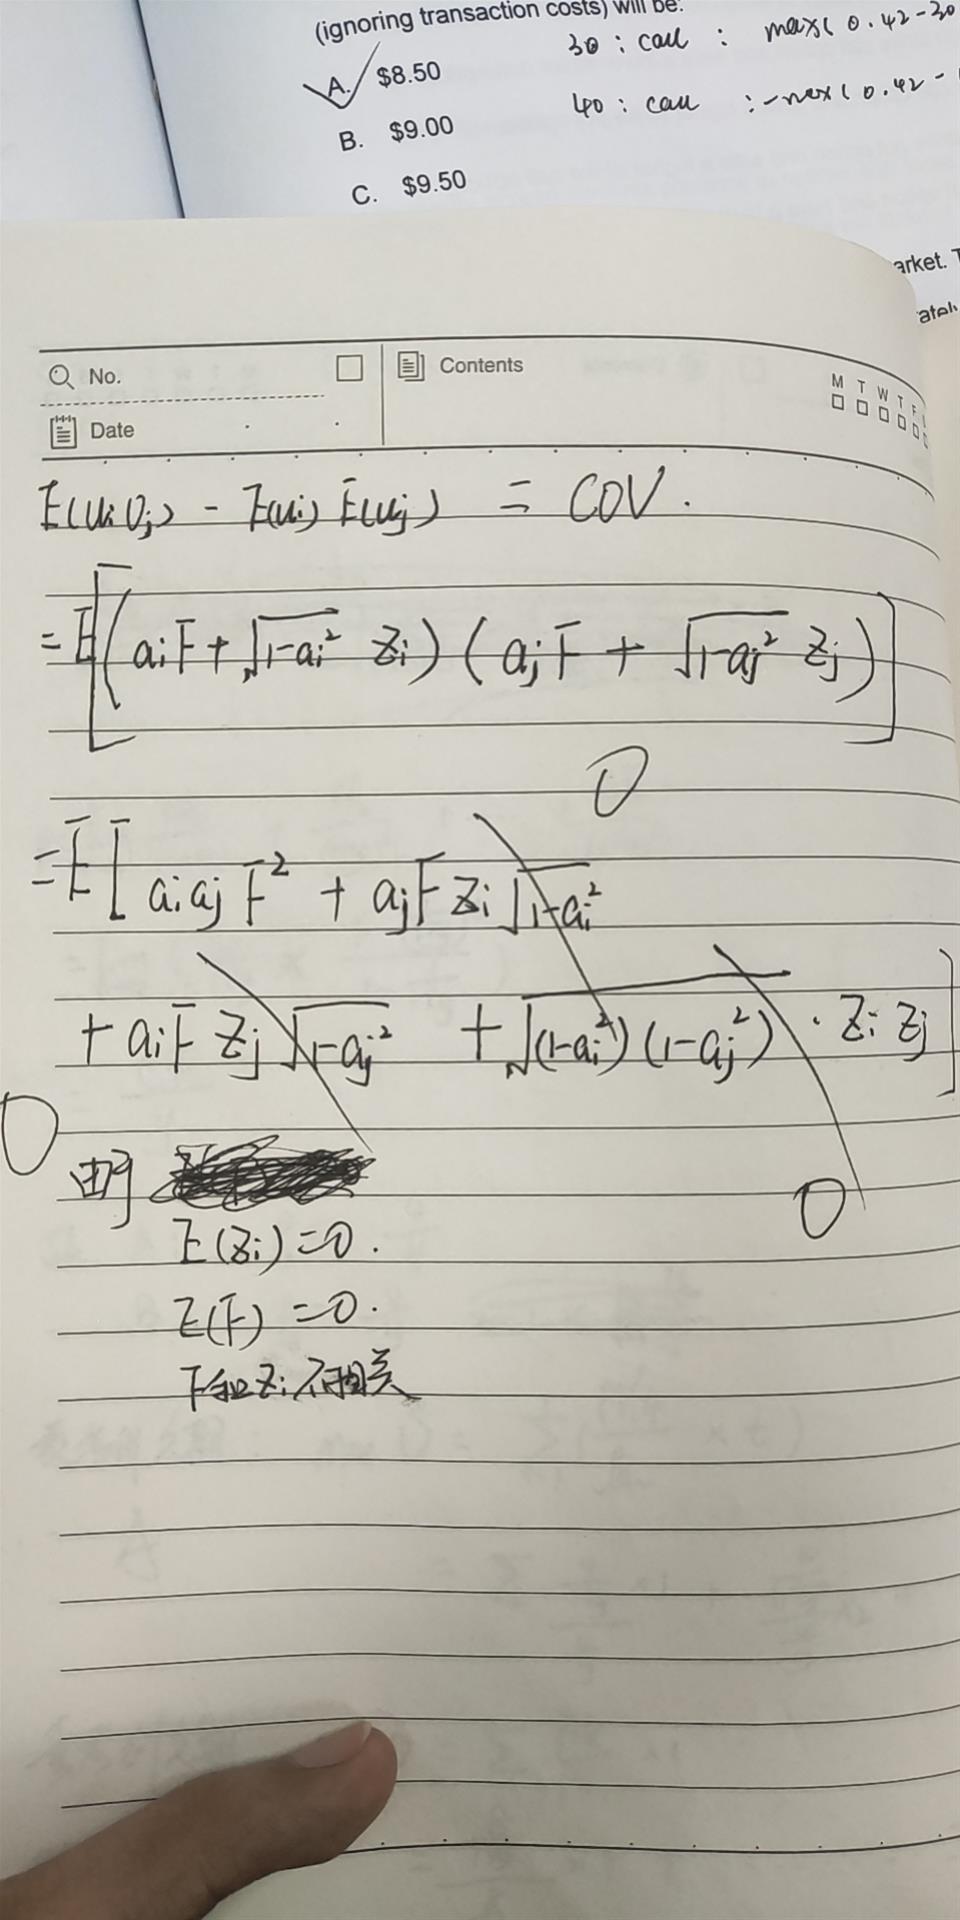 (ignoring transaction costs) will be:
A. $8.50
30 : call : max( 0.42-30
B. $9.00
40 : call : -max( 0.42 -
C. $9.50
arket. T
No.
Contents
M T W T F
Date
E(UiUj) - E(Ui) E(Uj) = COV.
= E[(aiF + √1-ai² Zi) (ajF + √1-aj² Zj)]
0
= E[ aiajF² + ajF Zi √1-ai²
+ aiF Zj √1-aj² + √(1-ai²)(1-aj²) · Zi Zj ]
0
由于
0
E(Zi)=0.
E(F)=0.
F和Zi不相关